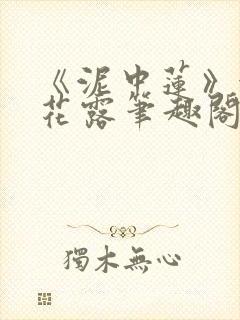 《泥中蓮》
花露筆趣閣
獨木無心